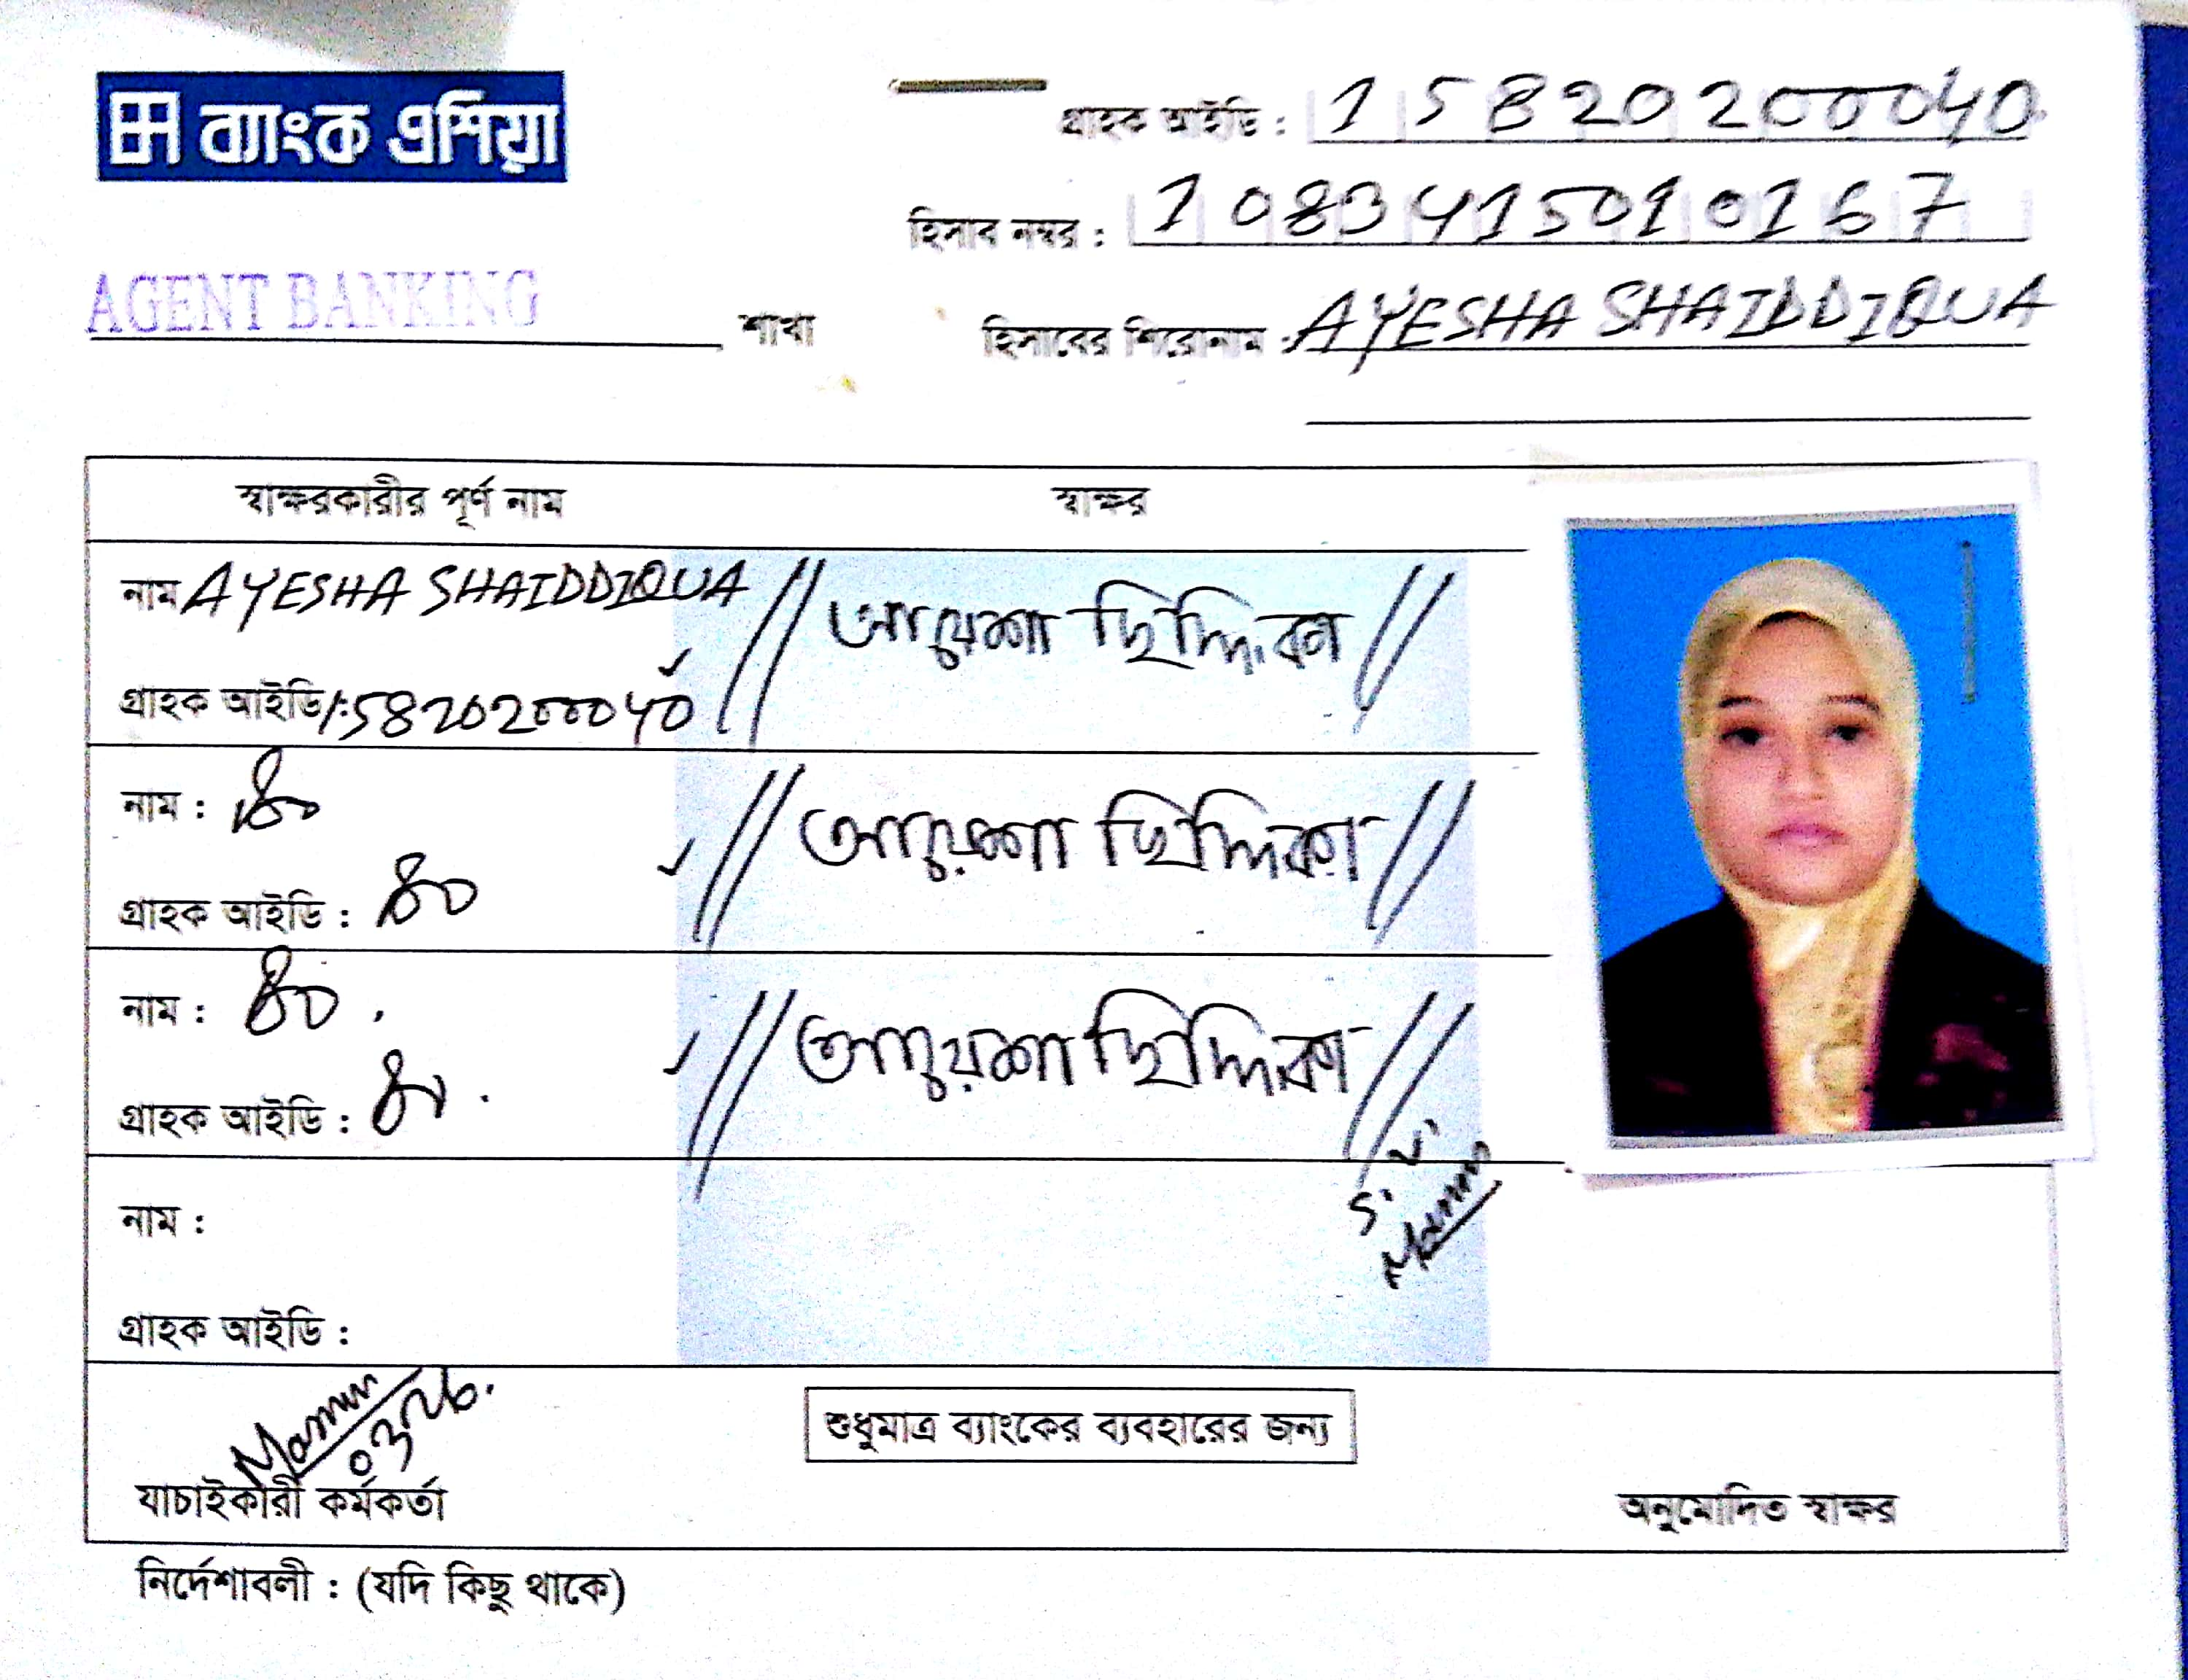 ব্যাংক এশিয়া
গ্রাহক আইডি : 15820200040
হিসাব নম্বর : 1083415010167
AGENT BANKING শাখা
হিসাবের শিরোনাম : AYESHA SHAIDDIQUA
স্বাক্ষরকারীর পূর্ণ নাম স্বাক্ষর
নাম AYESHA SHAIDDIQUA আয়েশা ছিদ্দিকা
গ্রাহক আইডি : 15820200040
নাম : আয়েশা ছিদ্দিকা
গ্রাহক আইডি :
নাম : আয়েশা ছিদ্দিকা
গ্রাহক আইডি :
S. V.
Mamun
নাম :
গ্রাহক আইডি :
Mamun
যাচাইকারী কর্মকর্তা
শুধুমাত্র ব্যাংকের ব্যবহারের জন্য
অনুমোদিত স্বাক্ষর
নির্দেশাবলী : (যদি কিছু থাকে)